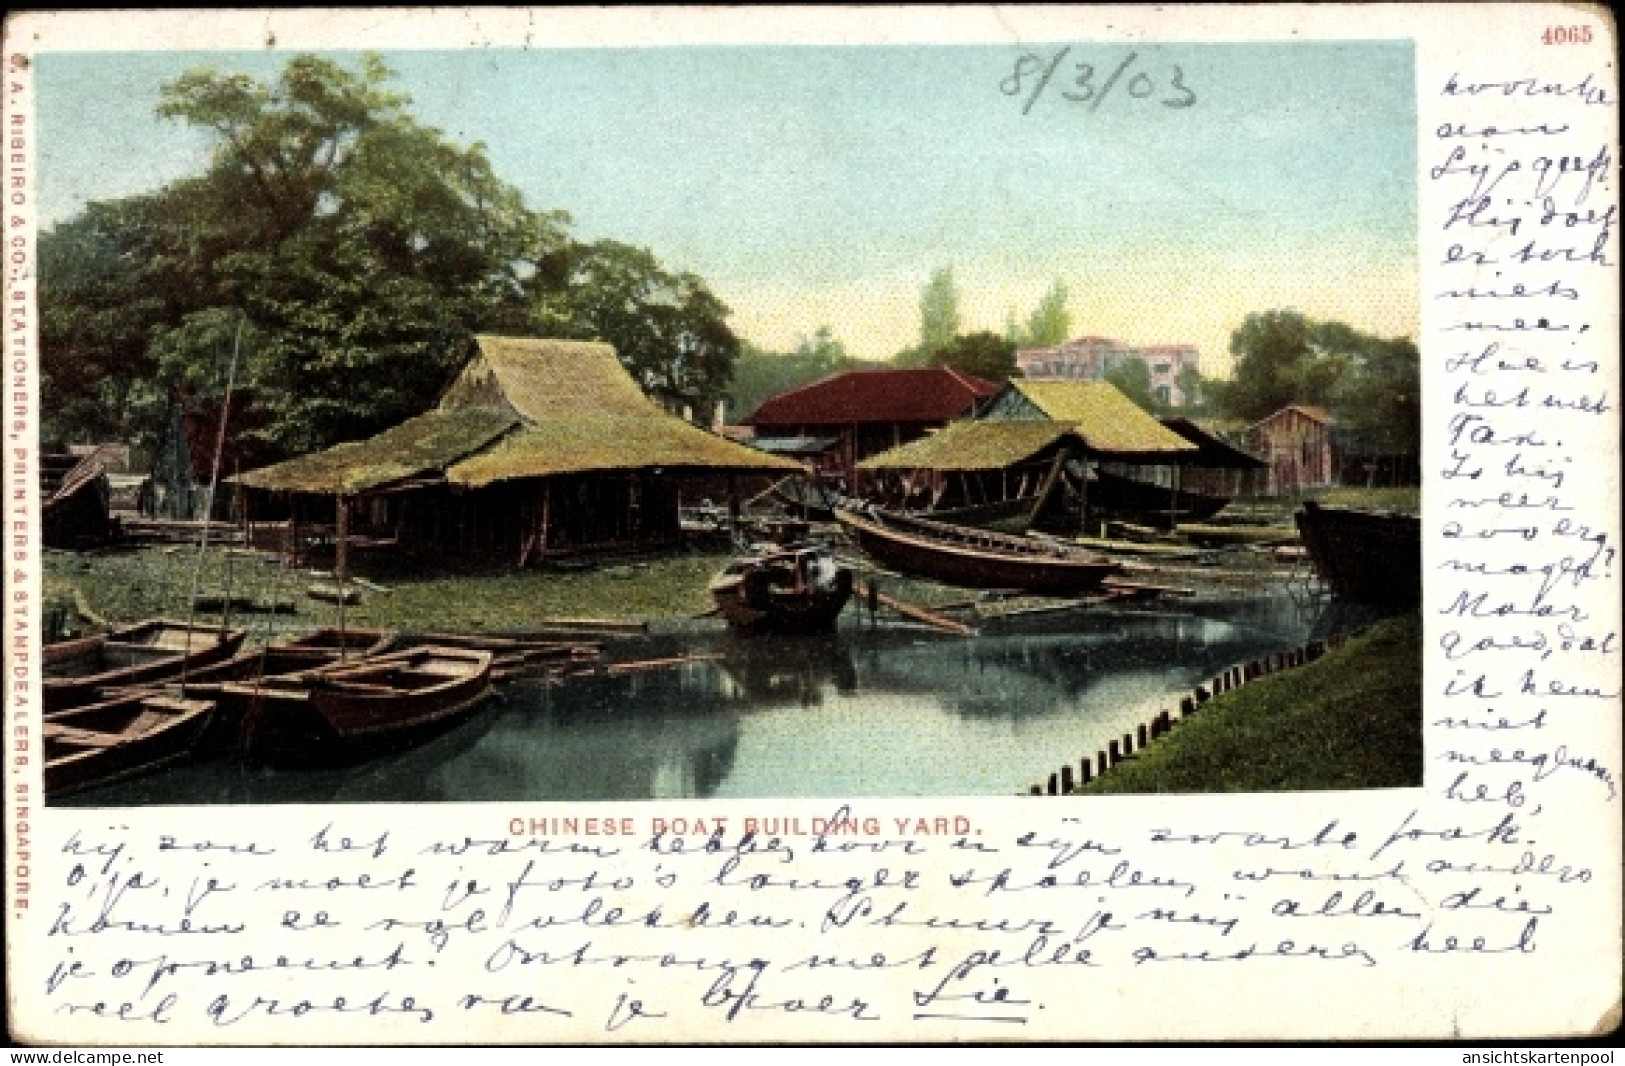 4065
8/3/03
G.A. RIBEIRO & CO., STATIONERS, PRINTERS & STAMPDEALERS, SINGAPORE.
aan
Lijs geeft
Hij doet
er toch
niets
mee.
Hoe is
het met
Tax.
Is hij
weer
zoo erg
mager?
Maar
goed, dat
ik hem
niet
meegenomen
heb,
CHINESE BOAT BUILDING YARD.
hij zou het warm hebben hoor in zijn zwarte pak.
O, ja, je moet je foto's langer spoelen, want anders
komen ze vol vlekken. Stuur je mij allen die
je opneemt? Ontvang met alle anderen heel
veel groeten van je Lie.
delcampe.net
ansichtskartenpool